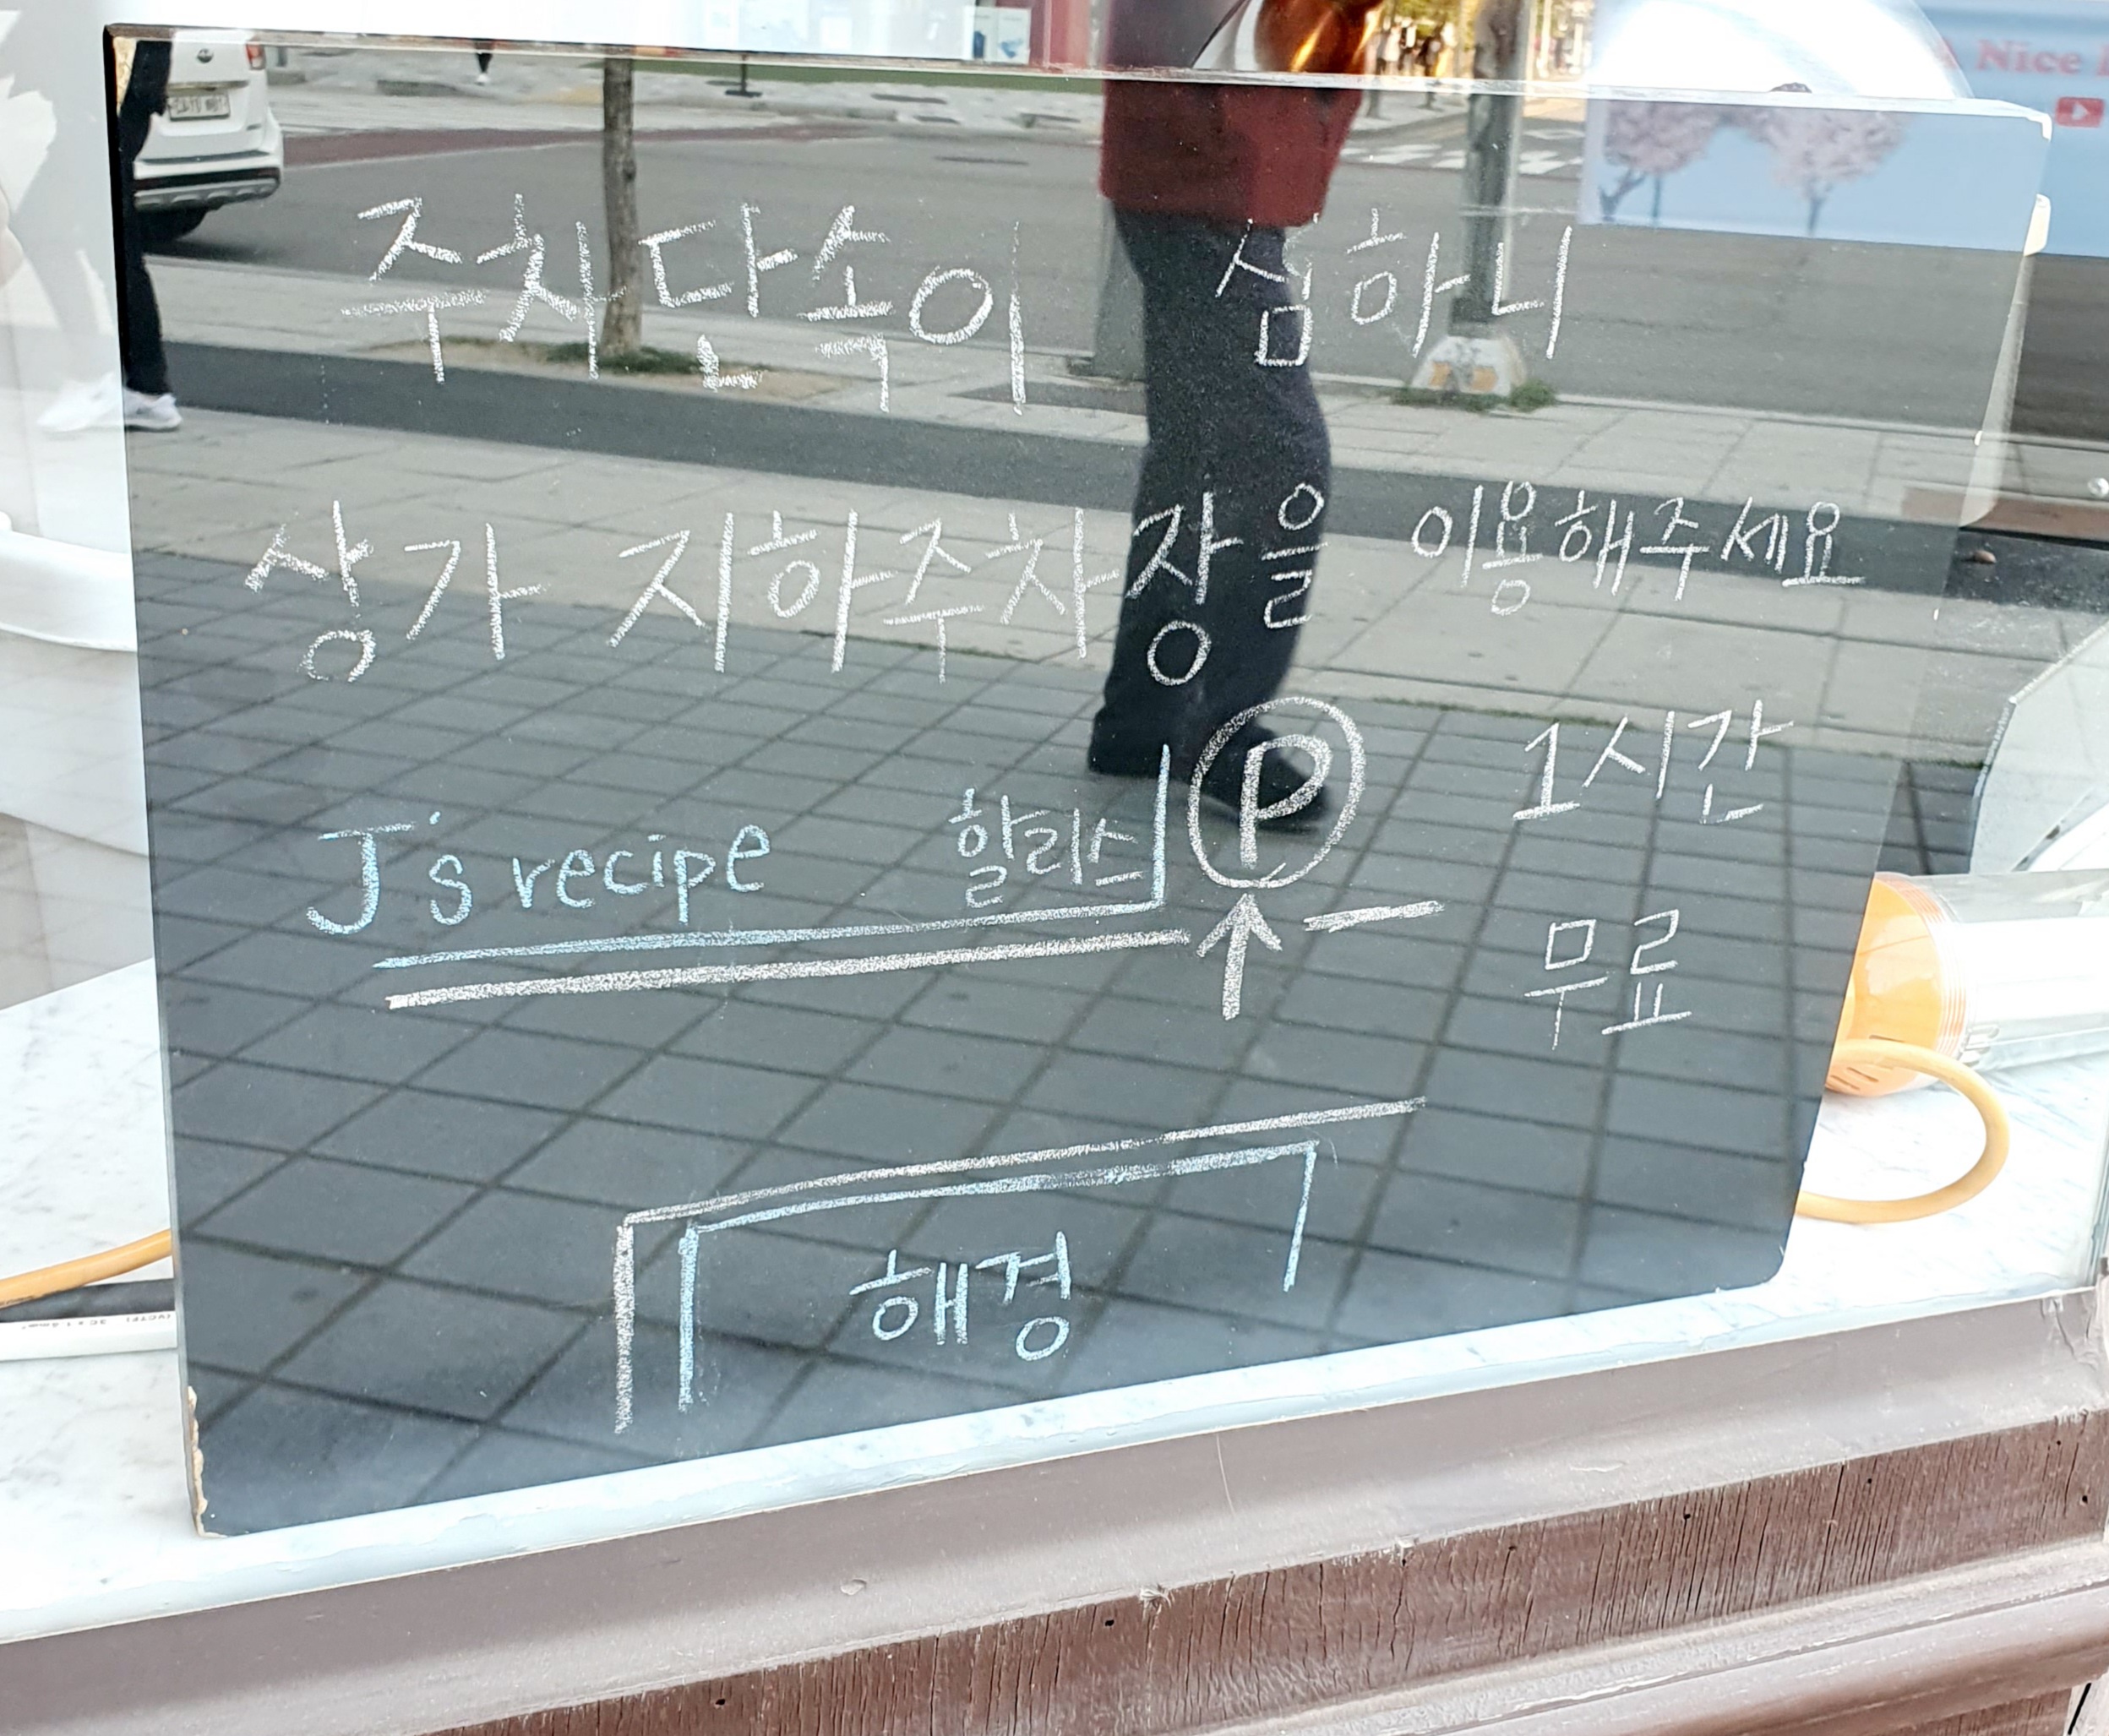 A Nice
주차단속이 심하니
상가 지하주차장을 이용해주세요
J's recipe 할리스 P 1시간
무료
해경